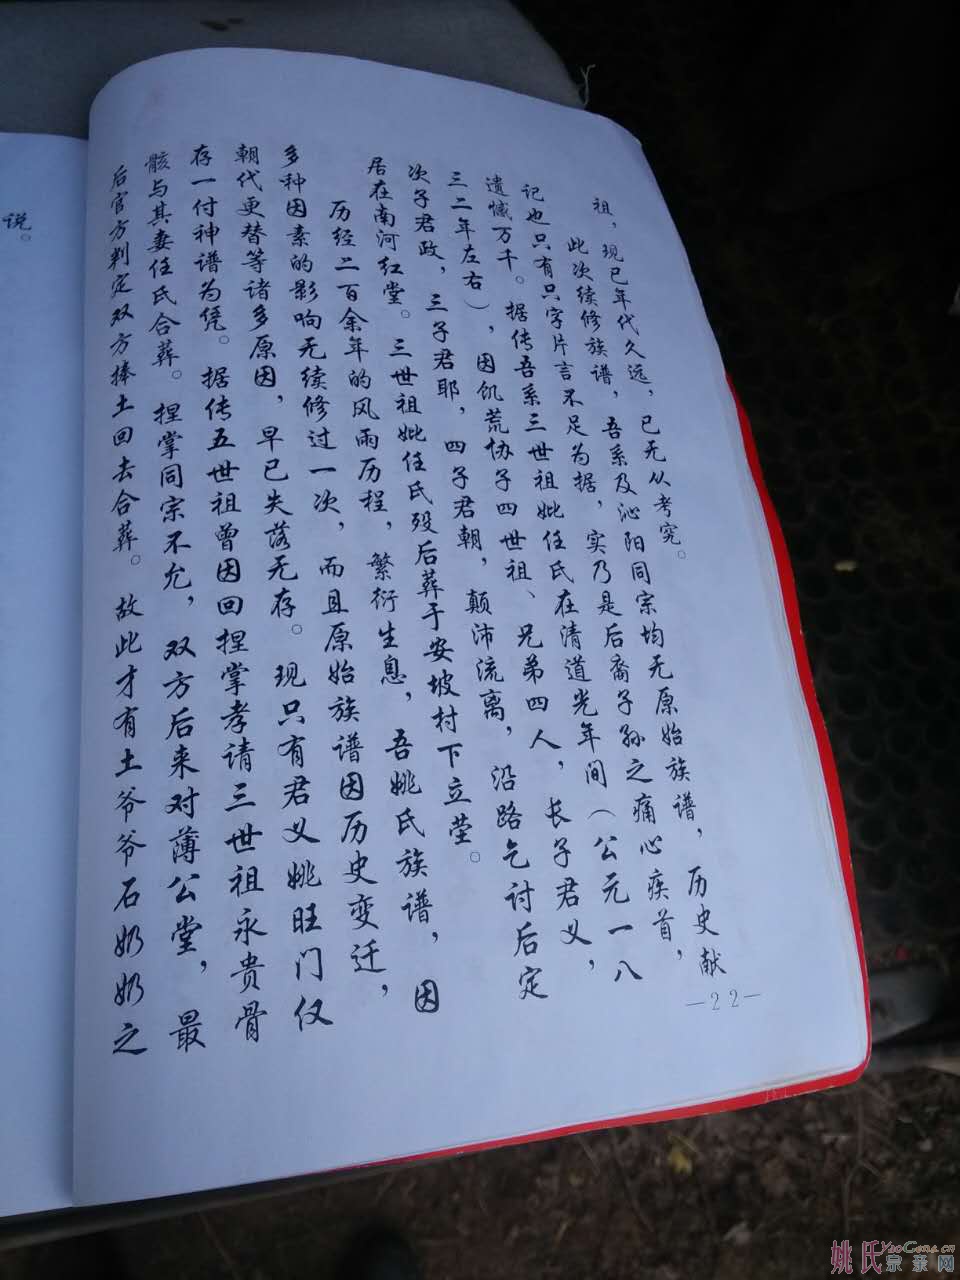 祖，现已年代久远，已无从考究。
此次续修族谱，吾系及沁阳同宗均无原始族谱，历史献
记也只有只字片言不足为据，实乃是后裔子孙之痛心疾首，
遗憾万千。据传吾系三世祖妣任氏在清道光年间（公元一八
三二年左右），因饥荒协子四世祖、兄弟四人，长子君义，
次子君政，三子君耶，四子君朝，颠沛流离，沿路乞讨后定
居在南河红堂。三世祖妣任氏殁后葬于安坡村下立茔。
历经二百余年的风雨历程，繁衍生息，吾姚氏族谱，因
多种因素的影响无续修过一次，而且原始族谱因历史变迁，
朝代更替等诸多原因，早已失落无存。现只有君义姚旺门仅
存一付神谱为凭。据传五世祖曾因回捏掌孝请三世祖永贵骨
骸与其妻任氏合葬。捏掌同宗不允，双方后来对薄公堂，最
后官方判定双方捧土回去合葬。故此才有土爷爷石奶奶之
说。
—22—
姚氏宗亲网
YaoGens.cn